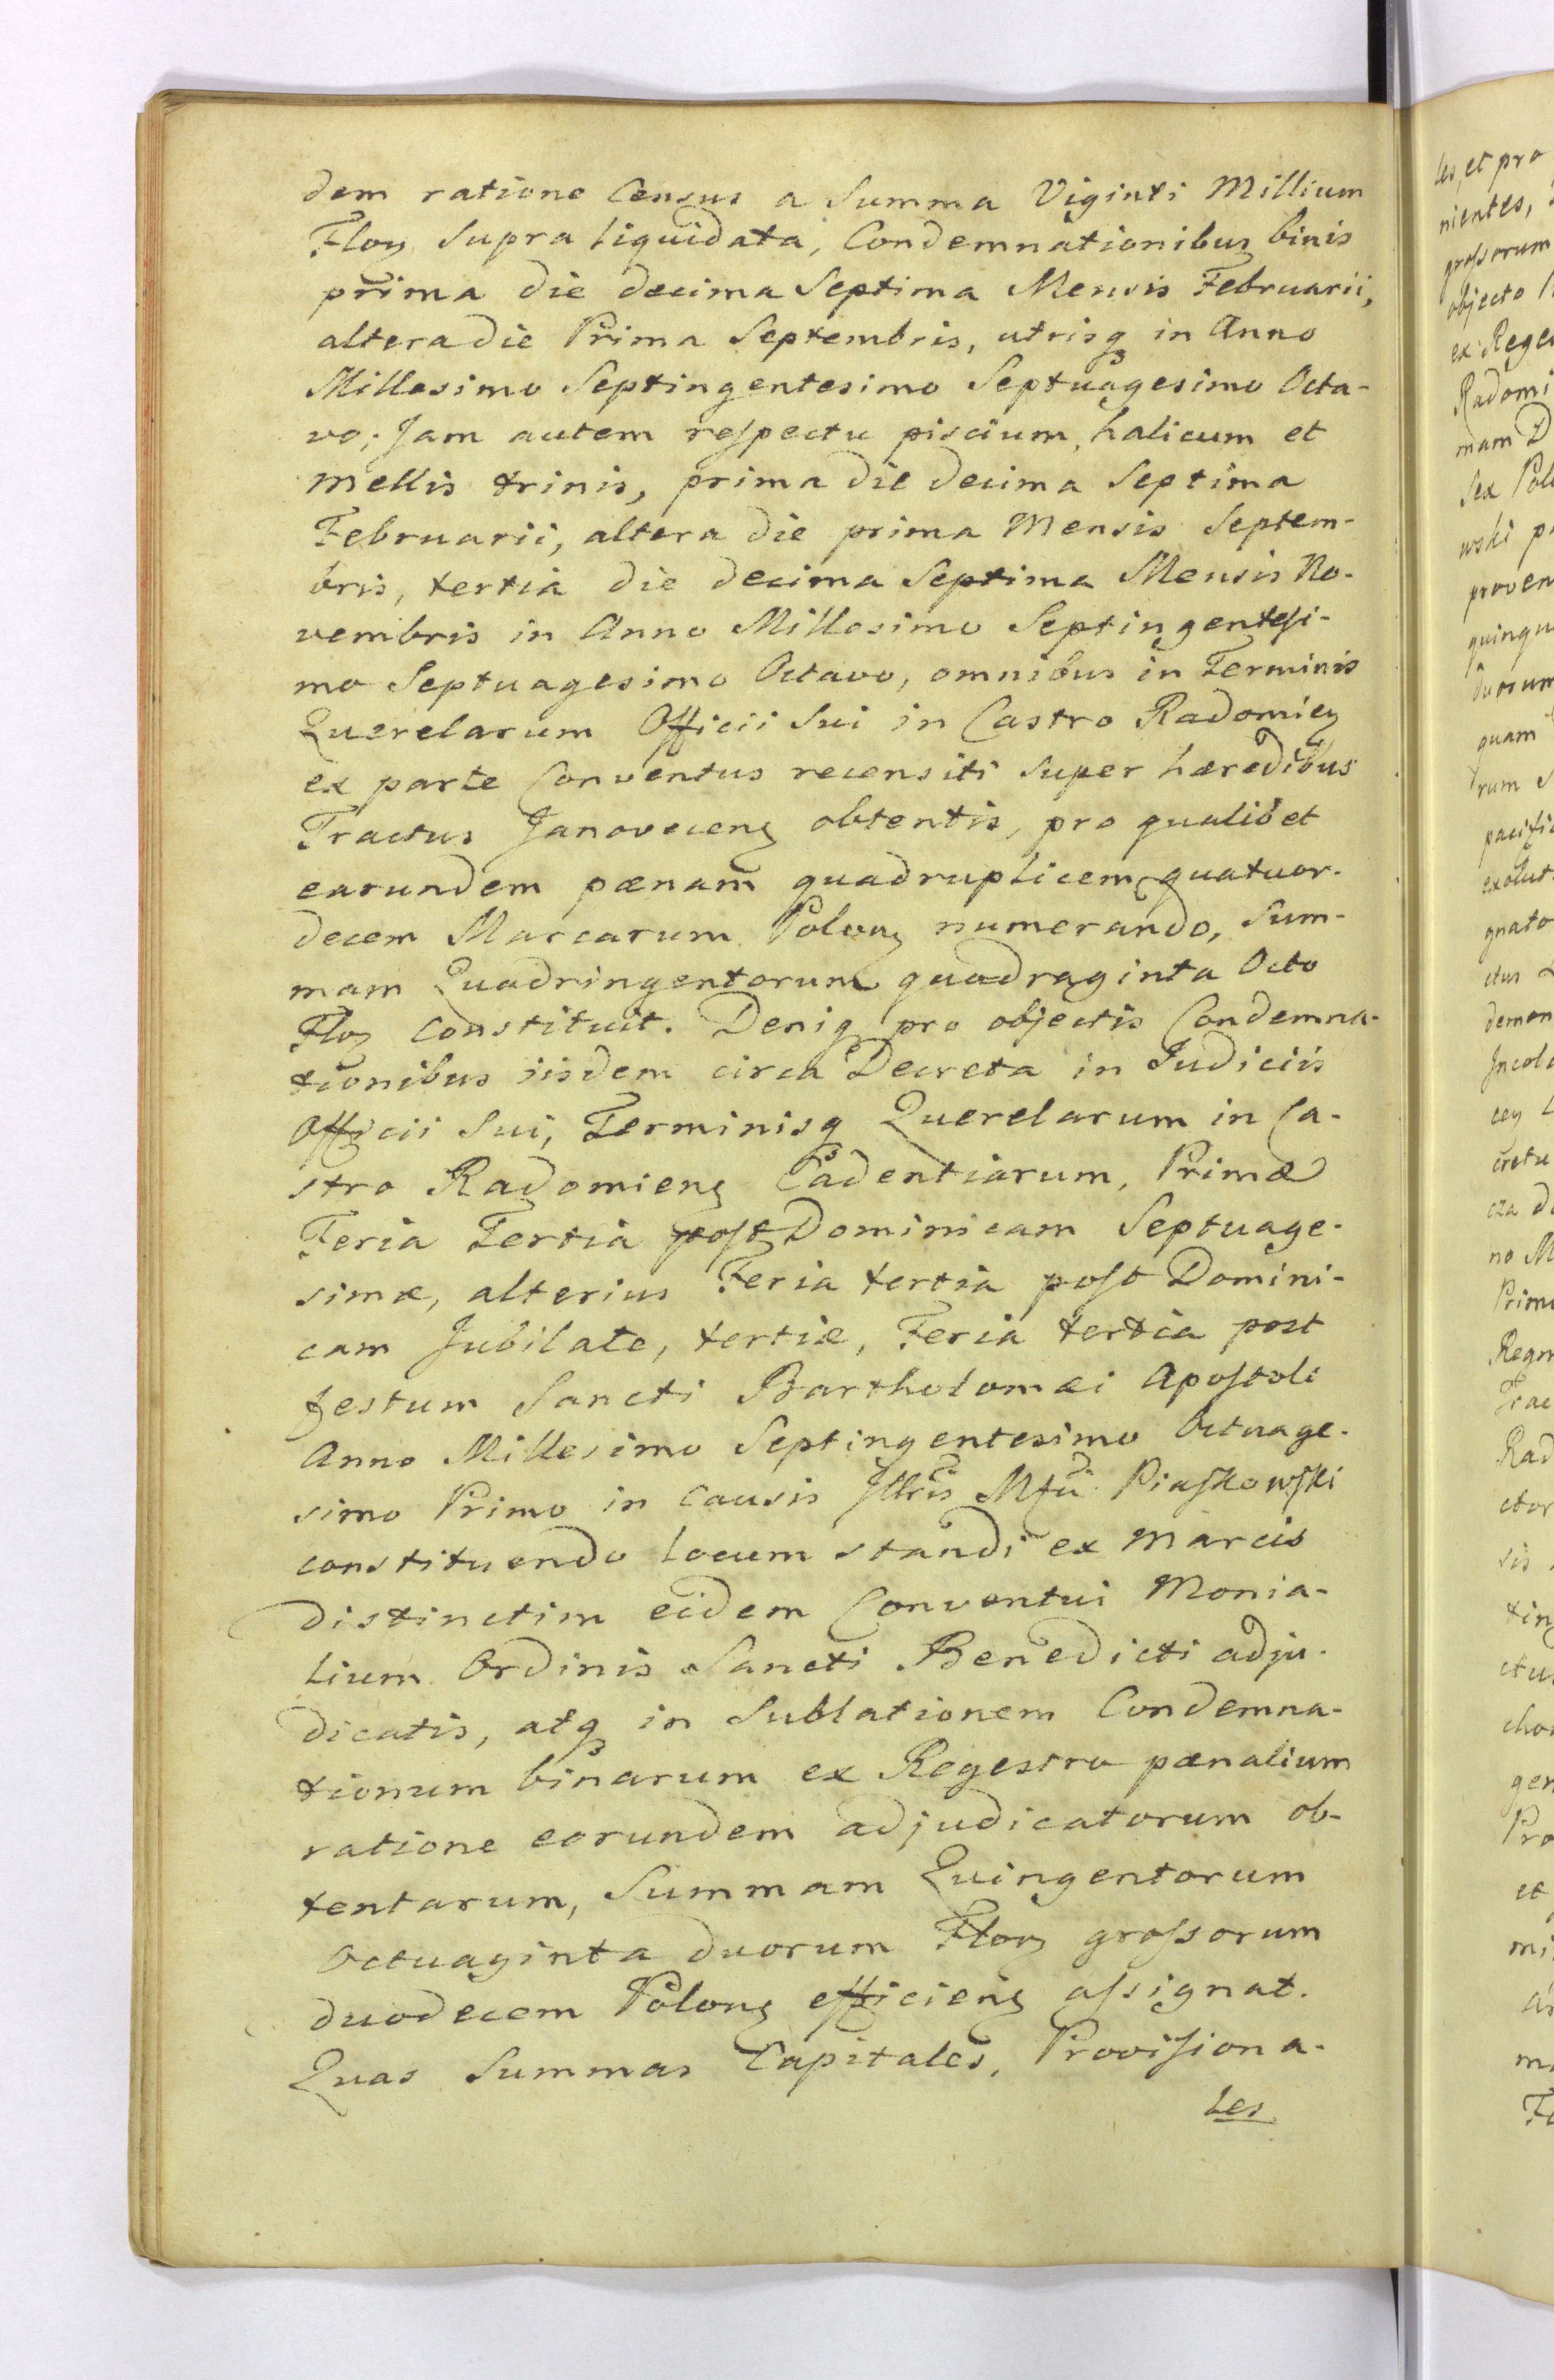 dem ratione Census a Summa Viginti Millium
Floz Supra liquidata, Condemnationibus binis
prima die decima Septima Mensis Februarii,
altera die Prima Septembris, utrisq in Anno
Millesimo Septingentesimo Septuagesimo Octa-
vo; Jam autem respectu piscium, halicum et
mellis trinis, prima die decima Septima
Februarii, altera die prima Mensis Septem-
bris, tertia die decima Septima Mensis No-
vembris in Anno Millesimo Septingentesi-
mo Septuagesimo Octavo, omnibus in Terminis
Querelarum Officii Sui in Castro Radomieņ
ex parte Conventus recensiti super hæredibus
Tractus Janovecens obtentis, pro qualibet
earundem pænam quadruplicem quatuor-
decem Marcarum Polon numerando, Sum-
mam Quadringentorum quadraginta Octo
Floz Constituit. Deniq pro objectis Condemna-
tionibus iisdem circa Decreta in Judiciis
Officii Sui, Terminisq Querelarum in Ca-
stro Radomiens Cadentiarum, Primæ
Feria Tertia post Dominicam Septuage-
simæ, alterius Feria tertia post Domini-
cam Jubilate, tertiæ, Feria tertia post
festum Sancti Bartholomæi Apostoli
Anno Millesimo Septingentesimo Octuage-
simo Primo in Causis Illris Mfci Piaskowski
constituendo locum standi ex Marcis
distinctim eidem Conventui Monia-
lium Ordinis Sancti Benedicti adju-
dicatis, atq in Sublationem Condemna-
tionum binarum ex Regestro pænalium
ratione eorundem adjudicatorum ob-
tentarum, Summam Quingentorum
Octuaginta duorum Floz grossorum
duodecem Polong efficiens assignat.
Quas Summas Capitales, Provisiona-
les
les, et pro
nientes,
grossorum
objecto
ex Rege
Radomi
mam D
Sex Pol
wski
proven
quinqu
duorum
quam
rum
exolut
gnato
ctus
demon
Incol
no M
Prim
Regn
Trac
Rad
ctor
gen
Pro
et